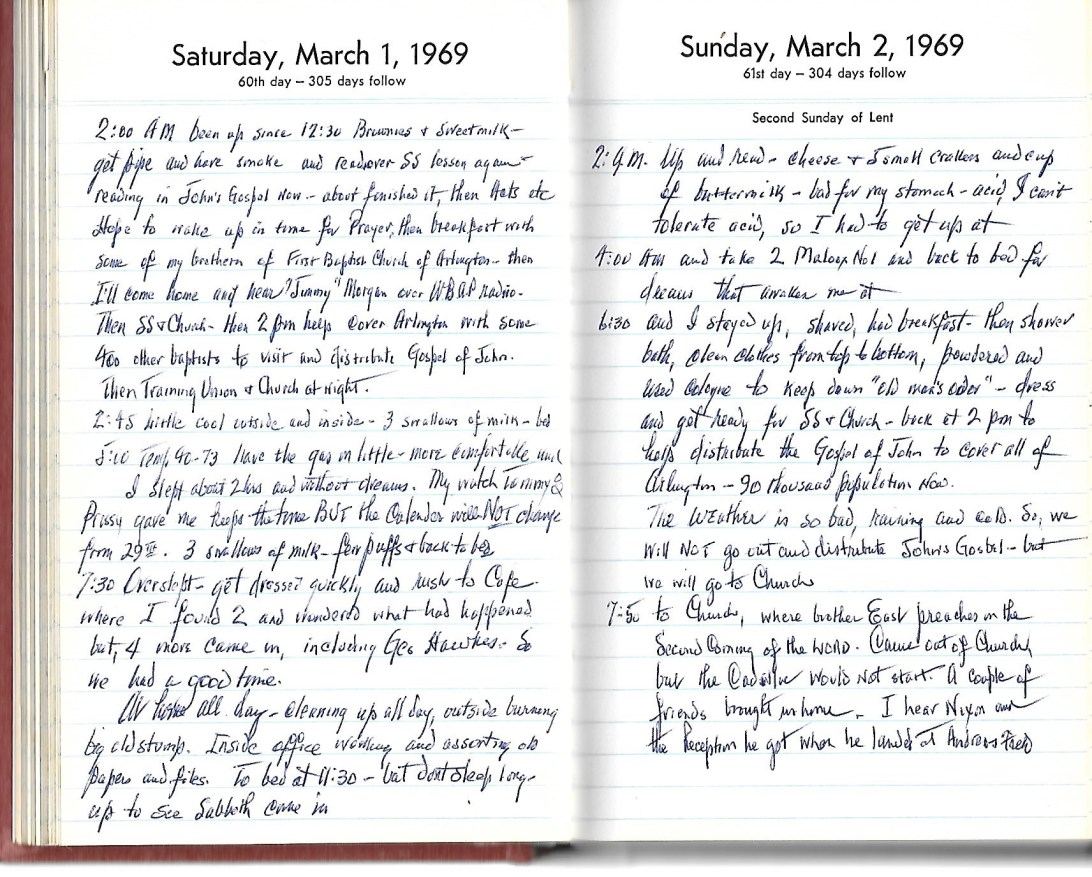 Saturday, March 1, 1969
60th day – 305 days follow
2:00 AM Been up since 12:30 Brownies & Sweetmilk –
get pipe and have smoke and read over SS lesson again –
reading in John's Gospel Now – about finished it, then Acts etc
Hope to wake up in time for Prayer, then breakfast with
some of my brothern of First Baptist Church of Arlington – then
I'll come home and hear "Jimmy" Morgan over WBAP radio.
Then SS & Church – then 2 pm help Cover Arlington with some
400 other baptists to visit and distribute Gospel of John.
Then Training Union & Church at Night.
2:45 little cool outside and inside – 3 swallows of milk – bed
5:00 Temp 40-73 have the gas on little – more comfortable and
I slept about 2 hrs and without dreams. My watch Tommy &
Prissy gave me keeps the time BUT the Calender will NOT change
from 29th. 3 swallows of milk – few puffs & back to bed
7:30 Overslept – get dressed quickly and rush to Cafe
where I found 2 and wondered what had happened
but, 4 more came in, including Geo Hawkes – So
we had a good time.
all day – Cleaning up all day, outside burning
big old stump. Inside office working and assorting old
papers and files. To bed at 11:30 – but dont sleep long –
up to see Sabbath come in
Sunday, March 2, 1969
61st day – 304 days follow
Second Sunday of Lent
2: A.M. Up and read – cheese & 5 small crackers and cup
of buttermilk – bad for my stomach – acid, I can't
tolerate acid, so I had to get up at
4:00 AM and take 2 Maalox No1 and back to bed for
dreams that awaken me at
6:30 and I stayed up, shaved, had breakfast – then shower
bath, clean clothes from top to bottom, powdered and
used cologne to keep down "old man's odor" – dress
and get ready for SS & Church – back at 2 pm to
help distribute the Gospel of John to cover all of
Arlington – 90 thousand population Now.
The WEATHER is so bad, raining and cold. So, we
will NOT go out and distribute John's Gospel – but
we will go to Church
7:50 to Church, where brother East preaches on the
Second Coming of the WORD. Came out of Church,
but the Cadillac would not start. A couple of
friends brought us home. I hear Nixon and
the Reception he got when he landed at Andrews Field